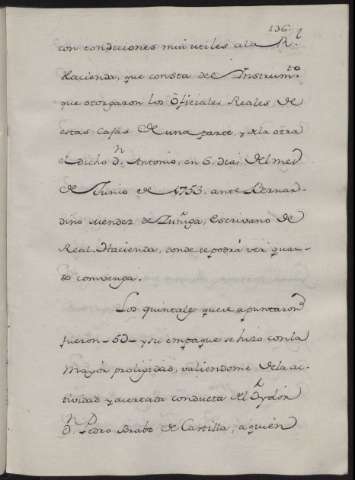 136
con condiciones mui utiles a la R.l
Hacienda, que consta del Instrum.to
que otorgaron los Oficiales Reales de
estas Cajas de una parte, y de la otra
el dicho D.n Antonio, en 6 dias del mes
de Junio de 1753 ante Bernar-
dino Mendez de Zuñiga, Escrivano de
Real Hacienda, donde se podrá ver quan-
do convenga.
Los quintales que se apuntaron
fueron 50 y su empaque se hizo con la
mayor prolijidad, valiendome de la ac-
tividad y acertada conducta del
D.n Pedro Brabo de Castilla, a quien